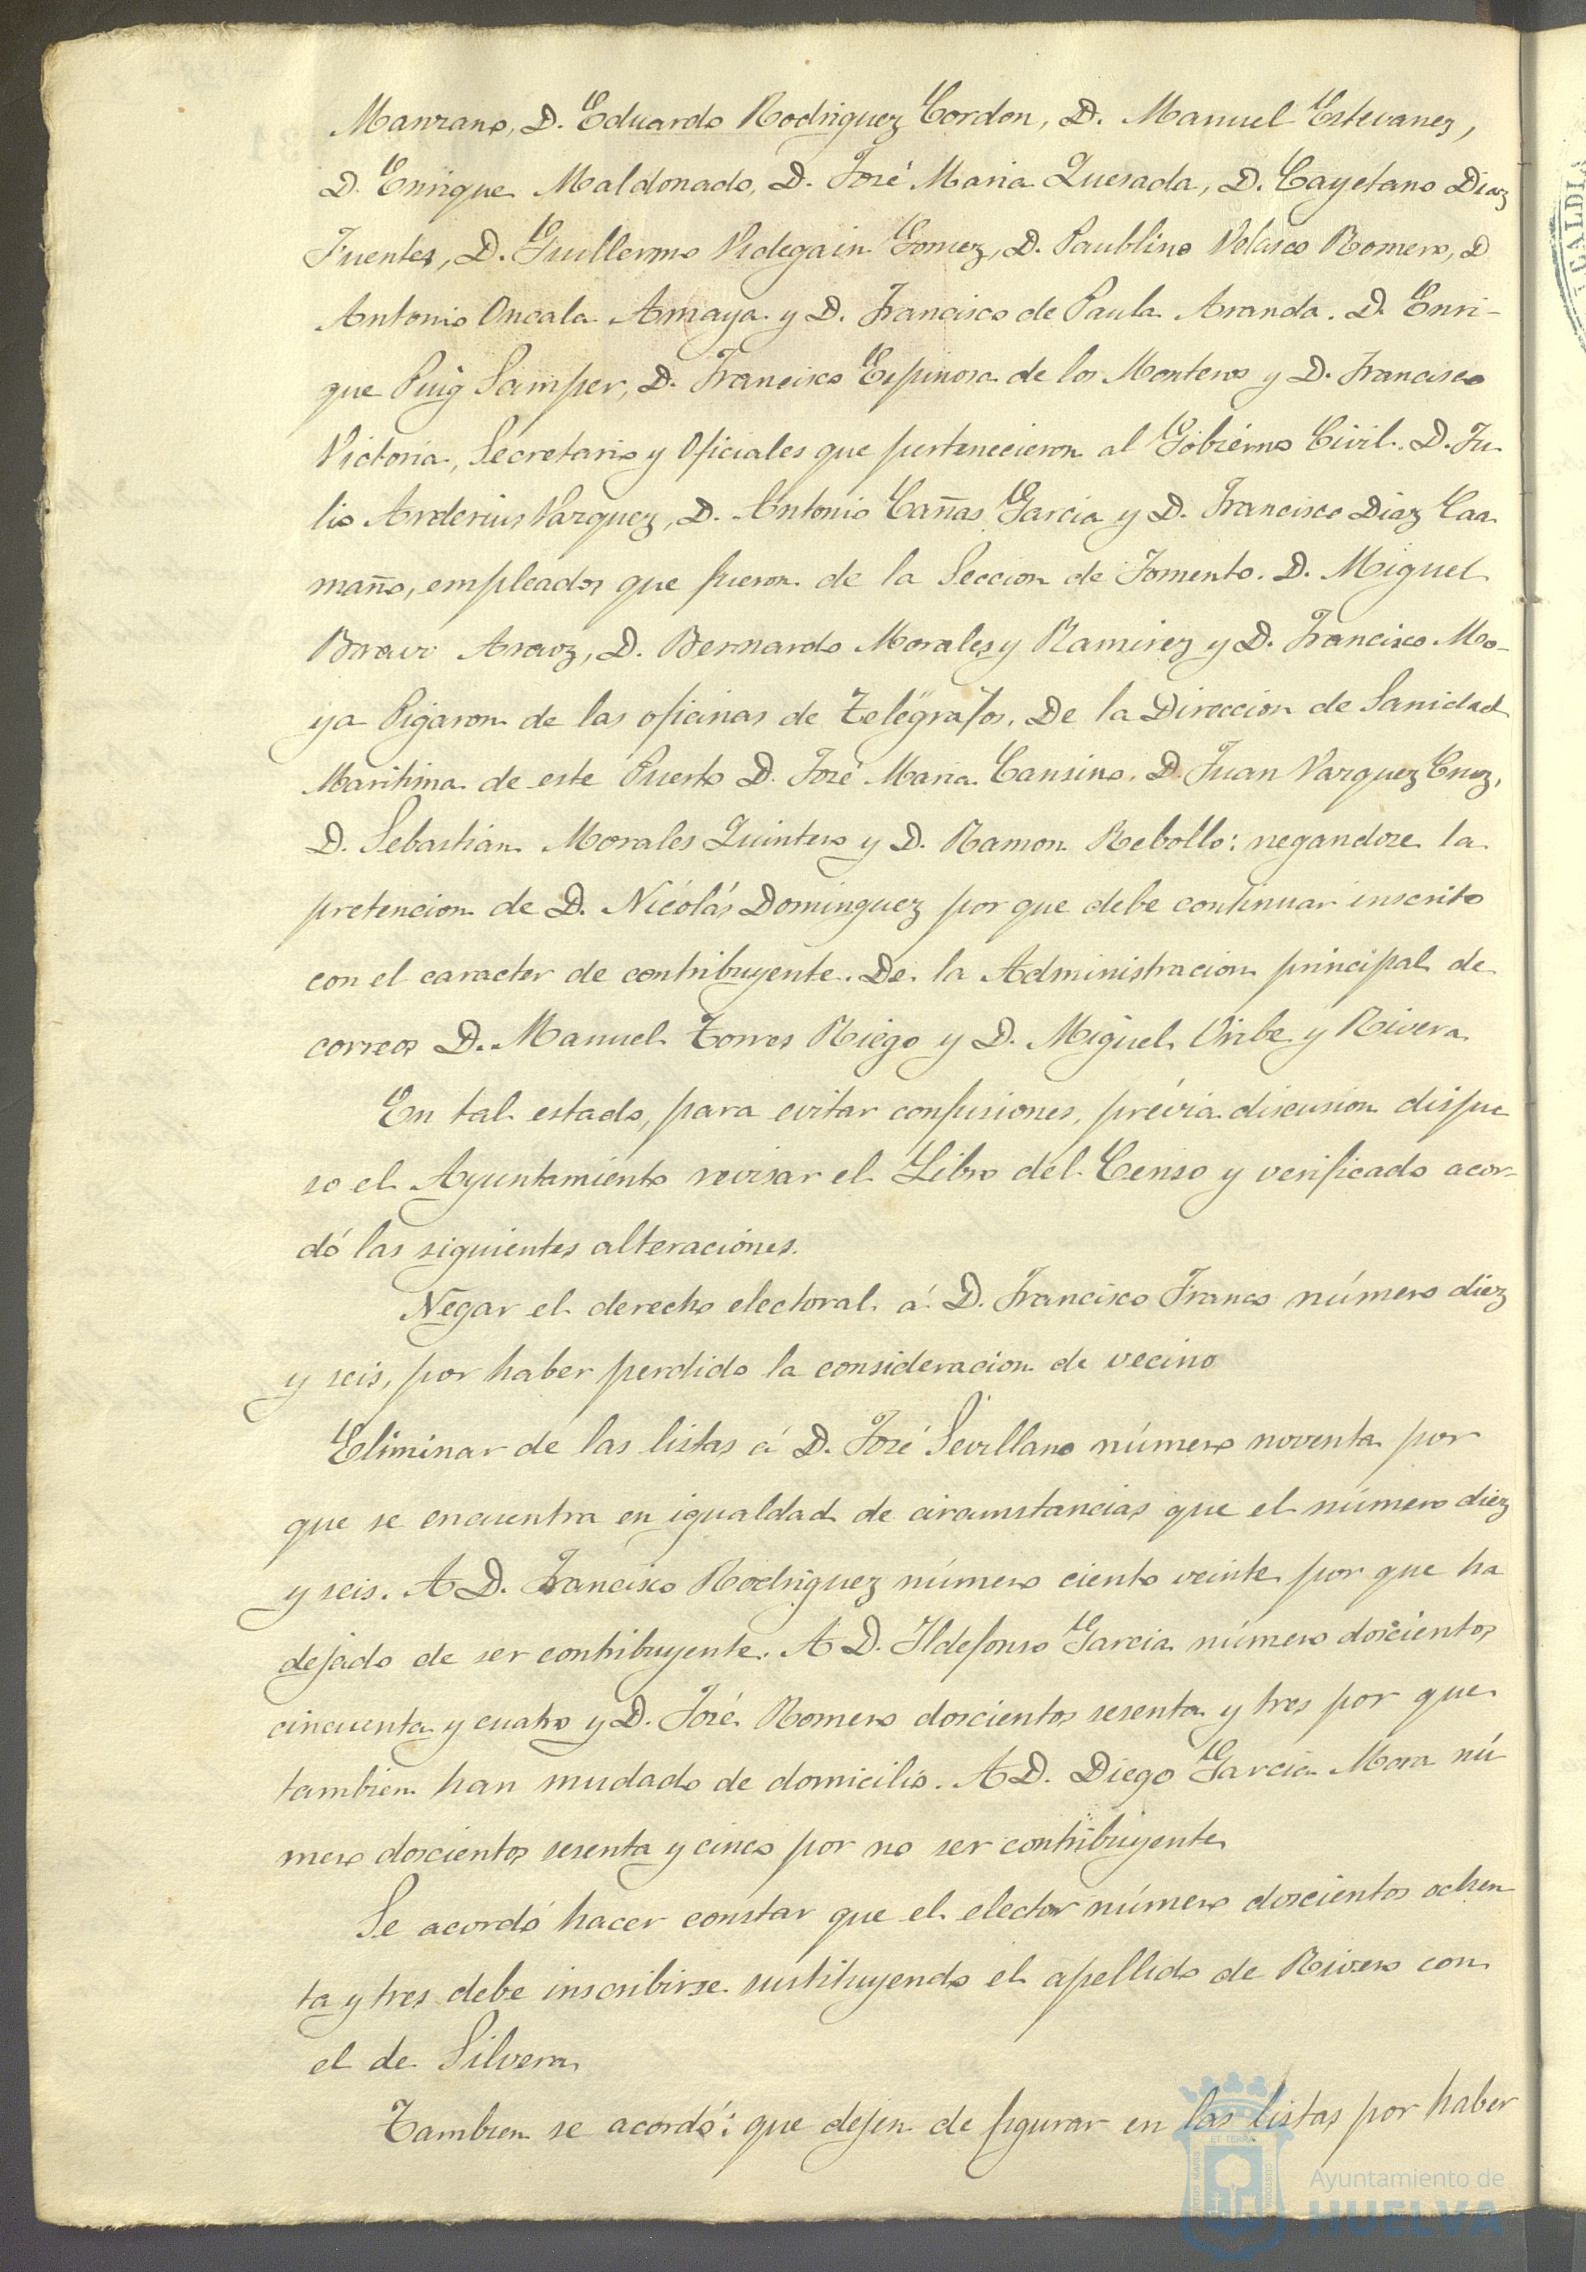 Manzano, D. Eduardo Rodriguez Cordon, D. Manuel Estevanez,
D. Enrique Maldonado, D. José Maria Quesada, D. Cayetano Diaz
Fuentes, D. Guillermo Videgain Gomez, D. Paublino Velasco Romero, D
Antonio Oncala Amaya y D. Francisco de Paula Aranda. D. Enri-
que Puig Samper, D. Francisco Espinosa de los Monteros y D. Francisco
Victoria, Secretario y Oficiales que pertenecieron al Gobierno Civil. D. Ju
lio Arderius Vazquez, D. Antonio Cañas Garcia y D. Francisco Diaz Caa
maño, empleados que fueron de la Seccion de Fomento. D. Miguel
Bravo Araoz, D. Bernardo Morales y Ramirez y D. Francisco Mo-
ya de las oficinas de Telégrafos. De la Direccion de Sanidad
Maritima de este Puerto D. José Maria Cansino, D. Juan Vazquez Cruz,
D. Sebastian Morales Quintero y D. Ramon Rebollo: negandose la
pretencion de D. Nicolás Dominguez por que debe continuar inscrito
con el caracter de contribuyente. De la Administracion principal de
correos D. Manuel Torres Riego y D. Miguel Uribe y Rivera
En tal estado, para evitar confusiones, prévia discusion dispu
so el Ayuntamiento revisar el Libro del Censo y verificado acor-
dó las siguientes alteraciones.
Negar el derecho electoral á D. Francisco Franco número diez
y seis, por haber perdido la consideracion de vecino
Eliminar de las listas á D. José Sevillano número noventa por
que se encuentra en igualdad de circunstancias que el número diez
y seis. A D. Francisco Rodriguez número ciento veinte por que ha
dejado de ser contribuyente. A D. Ildefonso Garcia número doscientos
cincuenta y cuatro y D. José Romero doscientos sesenta y tres por que
tambien han mudado de domicilio. A D. Diego Garcia Mora nú
mero doscientos sesenta y cinco por no ser contribuyente
Se acordó hacer constar que el elector número doscientos ochen
ta y tres debe inscribirse sustituyendo el apellido de Rivero con
el de Silvera
Tambien se acordó: que dejen de figurar en las listas por haber
Ayuntamiento de
HUELVA